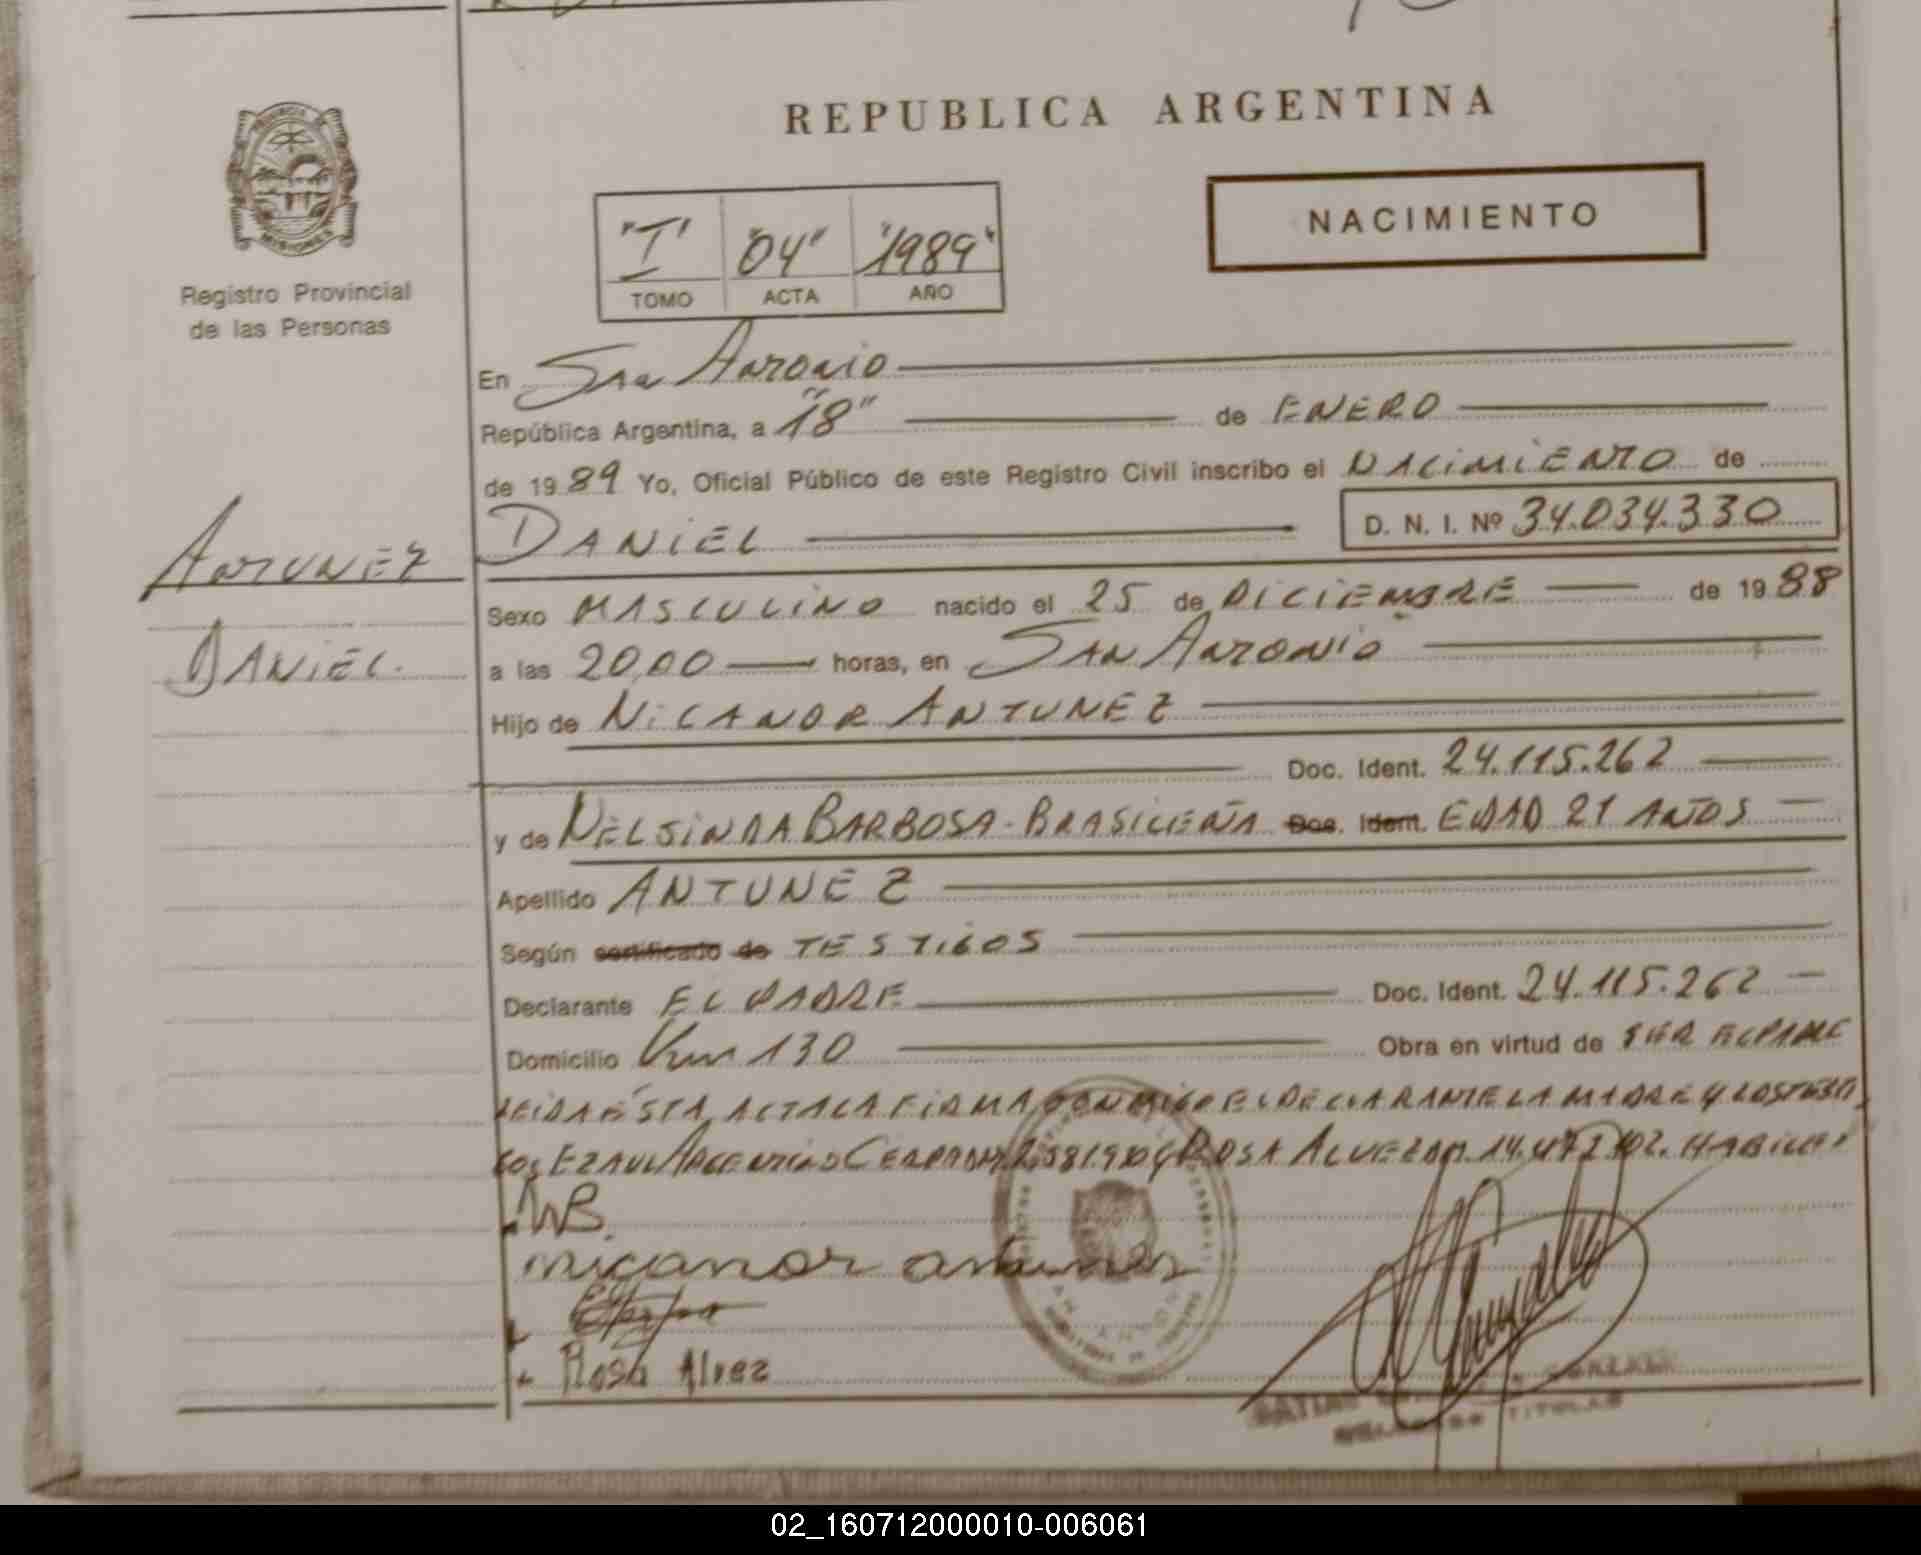 REPUBLICA ARGENTINA
NACIMIENTO
"I" "04" "1989"
TOMO ACTA AÑO
Registro Provincial
de las Personas
En San Antonio
República Argentina, a "18" de ENERO
de 1989 Yo, Oficial Público de este Registro Civil inscribo el NACIMIENTO de
DANIEL D. N. I. Nº 34.034.330
ANTUNEZ
DANIEL.
Sexo MASCULINO nacido el 25 de DICIEMBRE de 1988
a las 20,00 horas, en SAN ANTONIO
Hijo de NICANOR ANTUNEZ
Doc. Ident. 24.115.262
y de NELSINDA BARBOSA - BRASILEÑA Doc. Ident. EDAD 21 AÑOS
Apellido ANTUNEZ
Según certificado de TESTIGOS
Declarante EL PADRE Doc. Ident. 24.115.262
Domicilio Km 130 Obra en virtud de SER EL PADRE
LEIDA ÉSTA ACTA LA FIRMA CONMIGO EL DECLARANTE LA MADRE Y LOS TESTI
GOS ARGENTINOS Y ROSA ALVEZ HABILES
NB.
nicanor antunes
Rosa Alvez
TITULAR
02_160712000010-006061